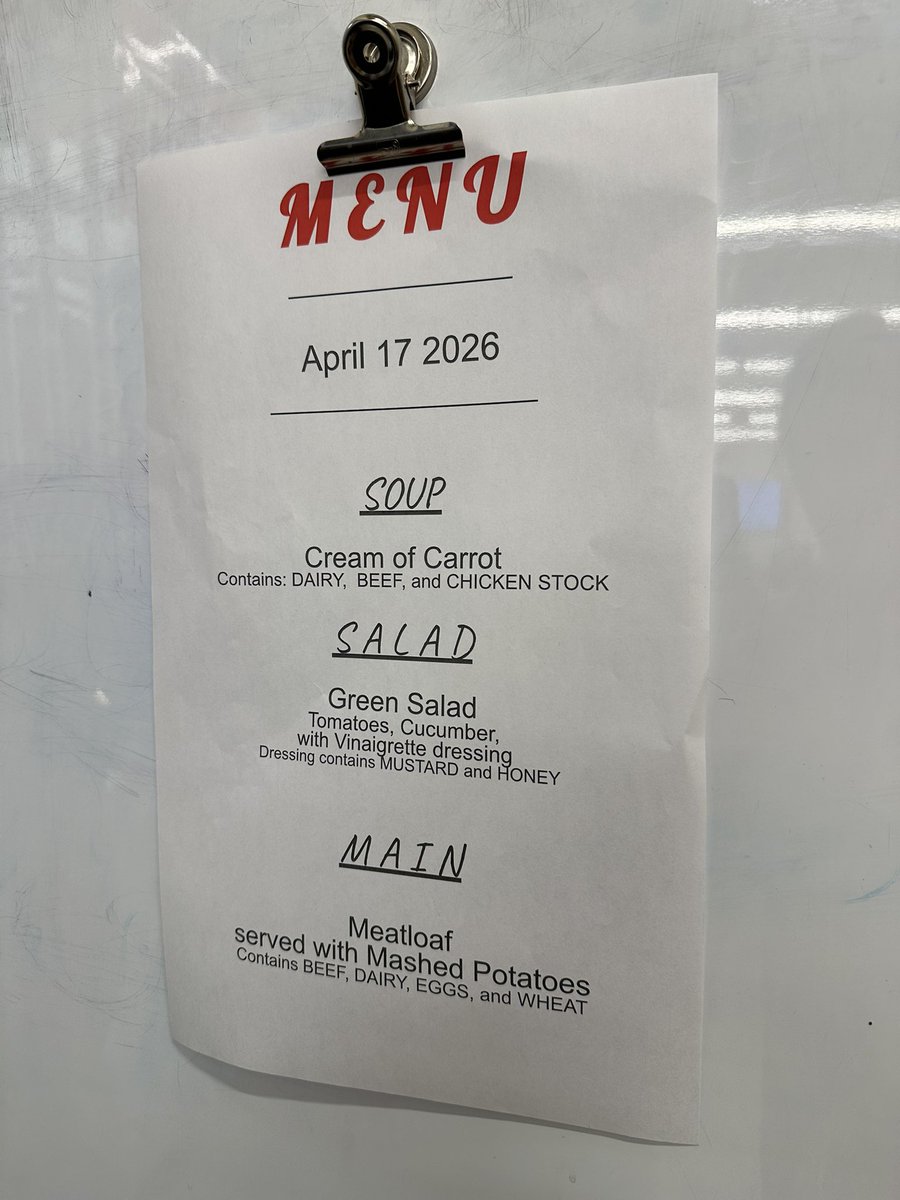 MENU
April 17 2026
SOUP
Cream of Carrot
Contains: DAIRY, BEEF, and CHICKEN STOCK
SALAD
Green Salad
Tomatoes, Cucumber,
with Vinaigrette dressing
Dressing contains MUSTARD and HONEY
MAIN
Meatloaf
served with Mashed Potatoes
Contains BEEF, DAIRY, EGGS, and WHEAT